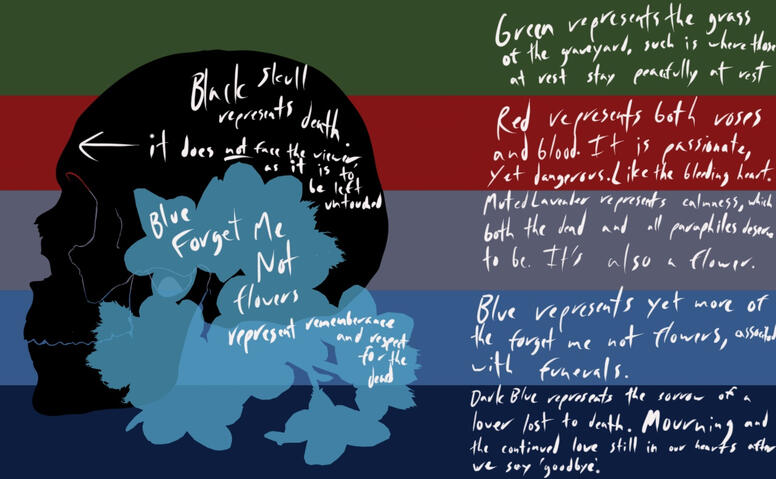 Black Skull
represents death.
it does not face the viewer,
as it is to
be left
untouched
Blue
Forget Me
Not
flowers
represent rememberance
and respect
for the
dead
Green represents the grass
of the graveyard, such is where those
at rest stay peacefully at rest
Red represents both roses
and blood. It is passionate,
yet dangerous. Like the bleeding heart.
Muted Lavender represents calmness, which
both the dead and all paraphiles deserve
to be. It's also a flower.
Blue represents yet more of
the forget me not flowers, associated
with funerals.
Dark Blue represents the sorrow of a
lover lost to death. Mourning and
the continued love still in our hearts after
we say 'goodbye'.